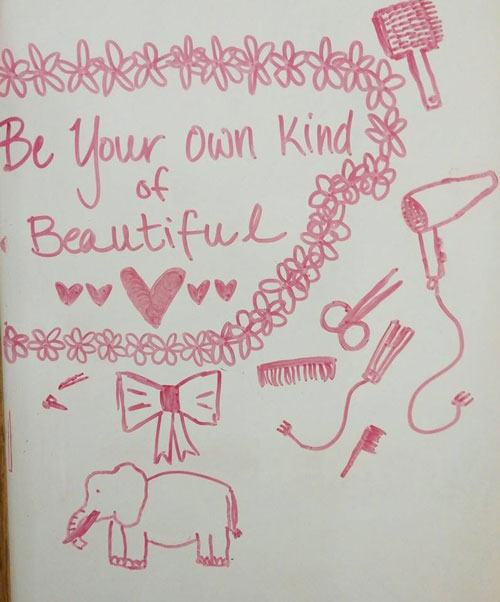 Be Your Own Kind
of
Beautiful